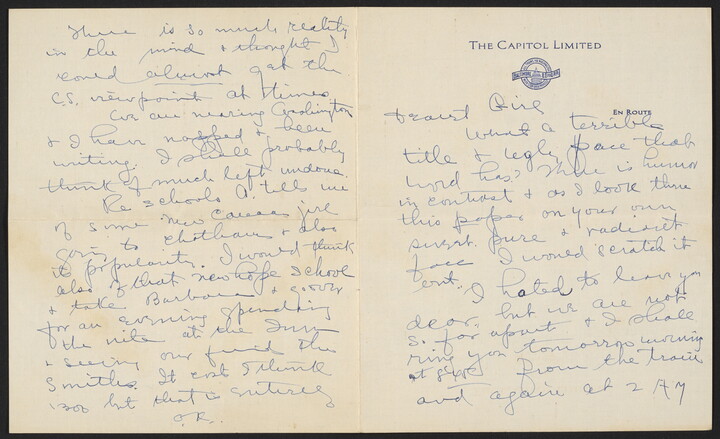 THE CAPITOL LIMITED
EN ROUTE
Dearest Girl
What a terrible
title & ugly face that
word has? There is humor
in contrast & as I look thru
this paper on your own
sweet pure & radiant
face I would scratch it
out.
I hated to leave you
dear, but we are not
so far apart & I shall
ring you tomorrow morning
at From the train
and again at 2 AM
There is so much reality
in the mind & thought I
could almost get the
C.S. viewpoint at times
We are nearing Washington
& I have napped & been
writing. I shall probably
think of much left undone.
Re schools A. tells me
of some new girl
going to Chatham & also
its popularity. I would think
also of that new hope school
& take Barbara &
for an evening spending
the nite at the Inn
& seeing our friend the
Smiths. It cost I think
1300 but that is entirely
O.K.